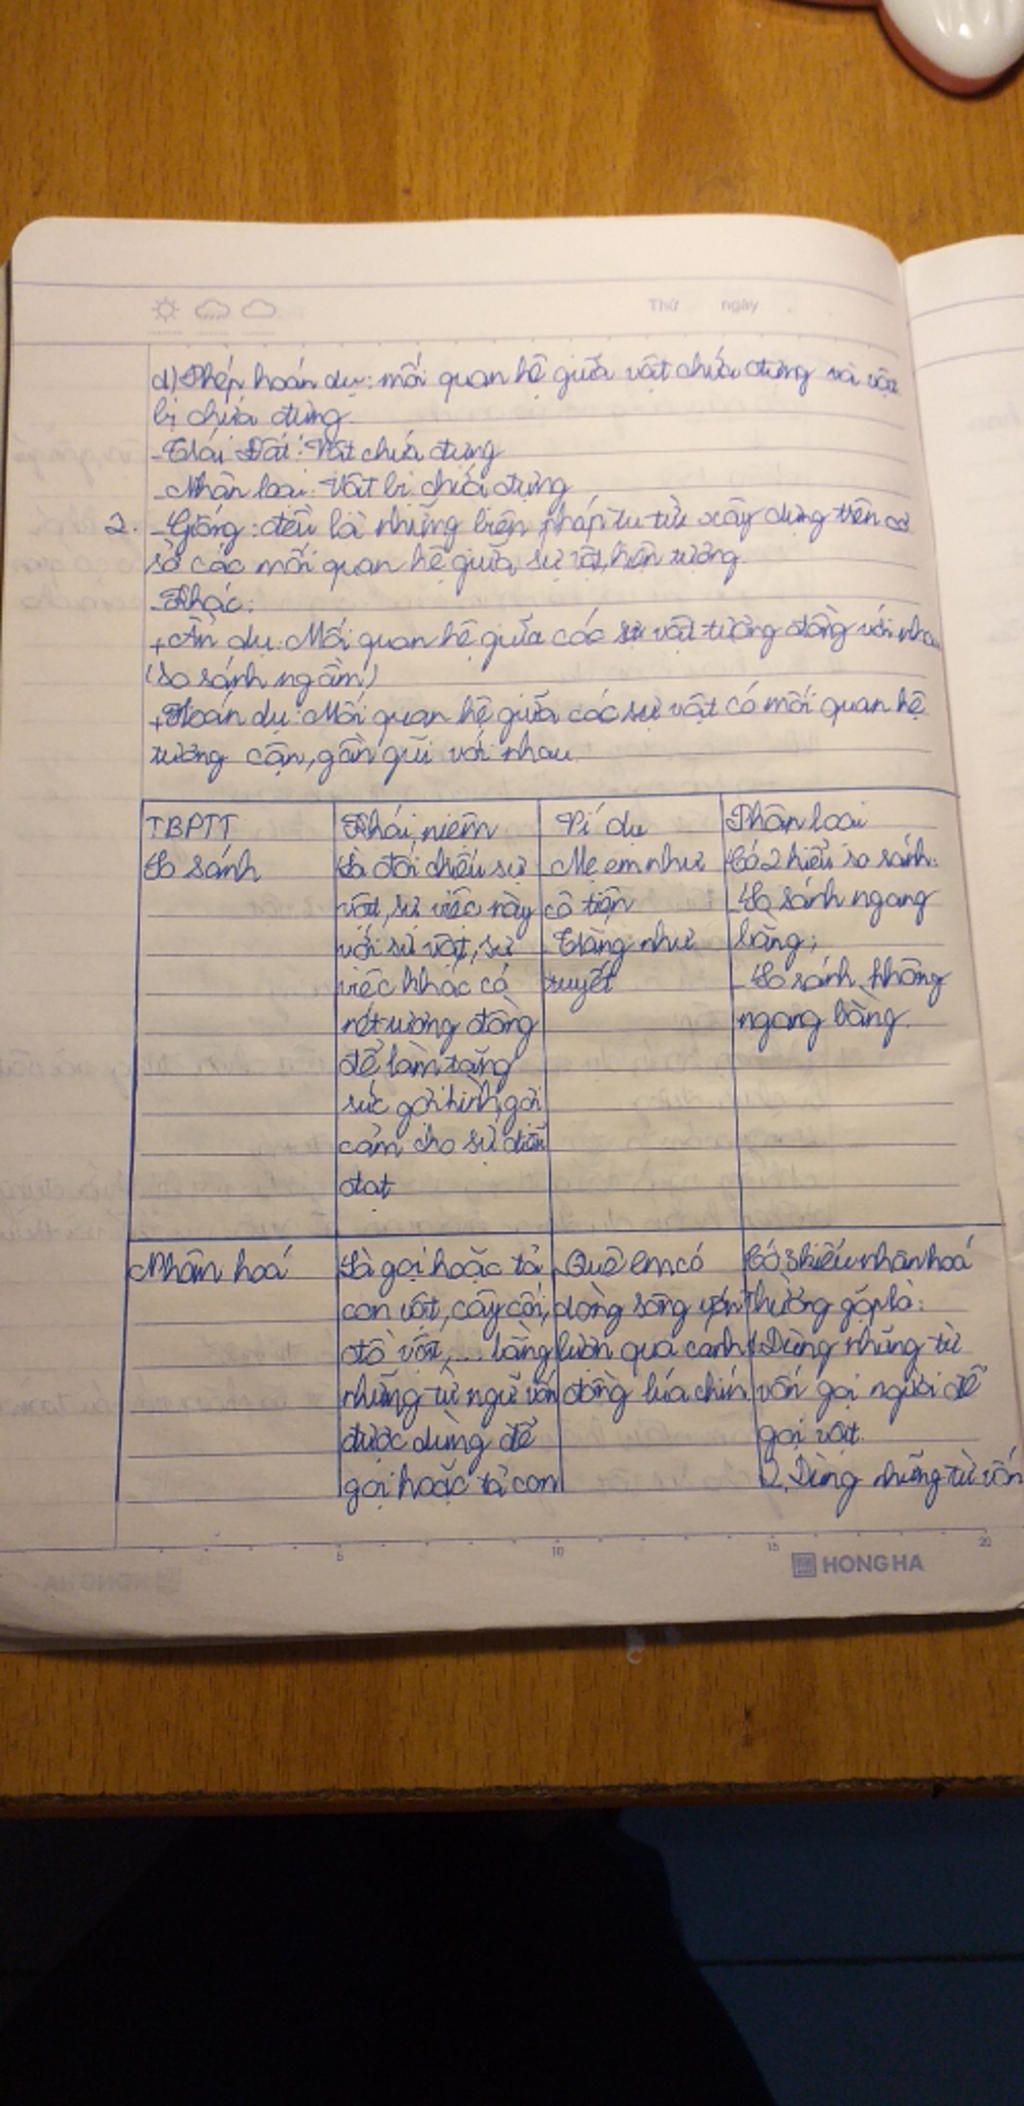 Thứ ngày
d) Phép hoán dụ: mối quan hệ giữa vật chứa đựng và vật
bị chứa đựng
- Trái Đất: Vật chứa đựng
- Nhân loại: Vật bị chứa đựng
2. - Giống: đều là những biện pháp tu từ xây dựng trên cơ
sở các mối quan hệ giữa sự vật, hiện tượng
- Khác:
+ Ẩn dụ: Mối quan hệ giữa các sự vật tương đồng với nhau
(so sánh ngầm)
+ Hoán dụ: Mối quan hệ giữa các sự vật có mối quan hệ
tương cận, gần gũi với nhau.
TBPTT
So sánh
Khái niệm
Là đối chiếu sự
vật, sự việc này
với sự vật, sự
việc khác có
nét tương đồng
để làm tăng
sức gợi hình, gợi
cảm cho sự diễn
đạt
Ví dụ
- Mẹ em như
cô tiên
- Trắng như
tuyết
Phân loại
Có 2 kiểu so sánh:
- So sánh ngang
bằng;
- So sánh không
ngang bằng.
Nhân hoá
Là gọi hoặc tả
con vật, cây cối,
đồ vật,... bằng
những từ ngữ vốn
được dùng để
gọi hoặc tả con
Quê em có
dòng sông uốn
lượn qua cánh
đồng lúa chín
Có 3 kiểu nhân hoá
thường gặp là:
1. Dùng những từ
vốn gọi người để
gọi vật.
2. Dùng những từ vốn
5 10 15 20
HONG HA